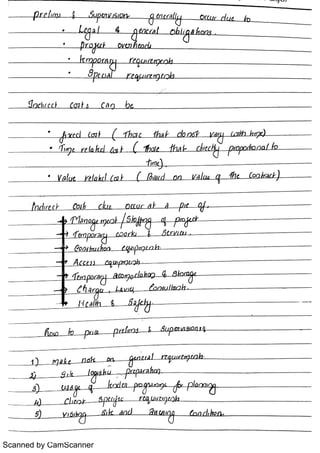 prelims & Supervision generally occur due to
• Legal & general obligations.
• project overheads
• temporary requirements
• Special requirements
Indirect costs can be
• fixed cost ( Those that do not vary with time)
• Time related cost ( those that directly proportional to
time).
• Value related cost ( Based on value of the contract)
Indirect cost also occur at a pie of.
Management / Staffing of project
Temporary works & Services.
Construction equipments
Access equipments
Temporary accomodation & Storage
Charges, Levies, Consultants.
Health & Safety.
How to price prelims & Supervisions
1) make note on general requirements
2) Site logistics preparation
3) Usage of tender programme for planning
4) Client Specific requirements
5) Visiting Site and conditions
Scanned by CamScanner